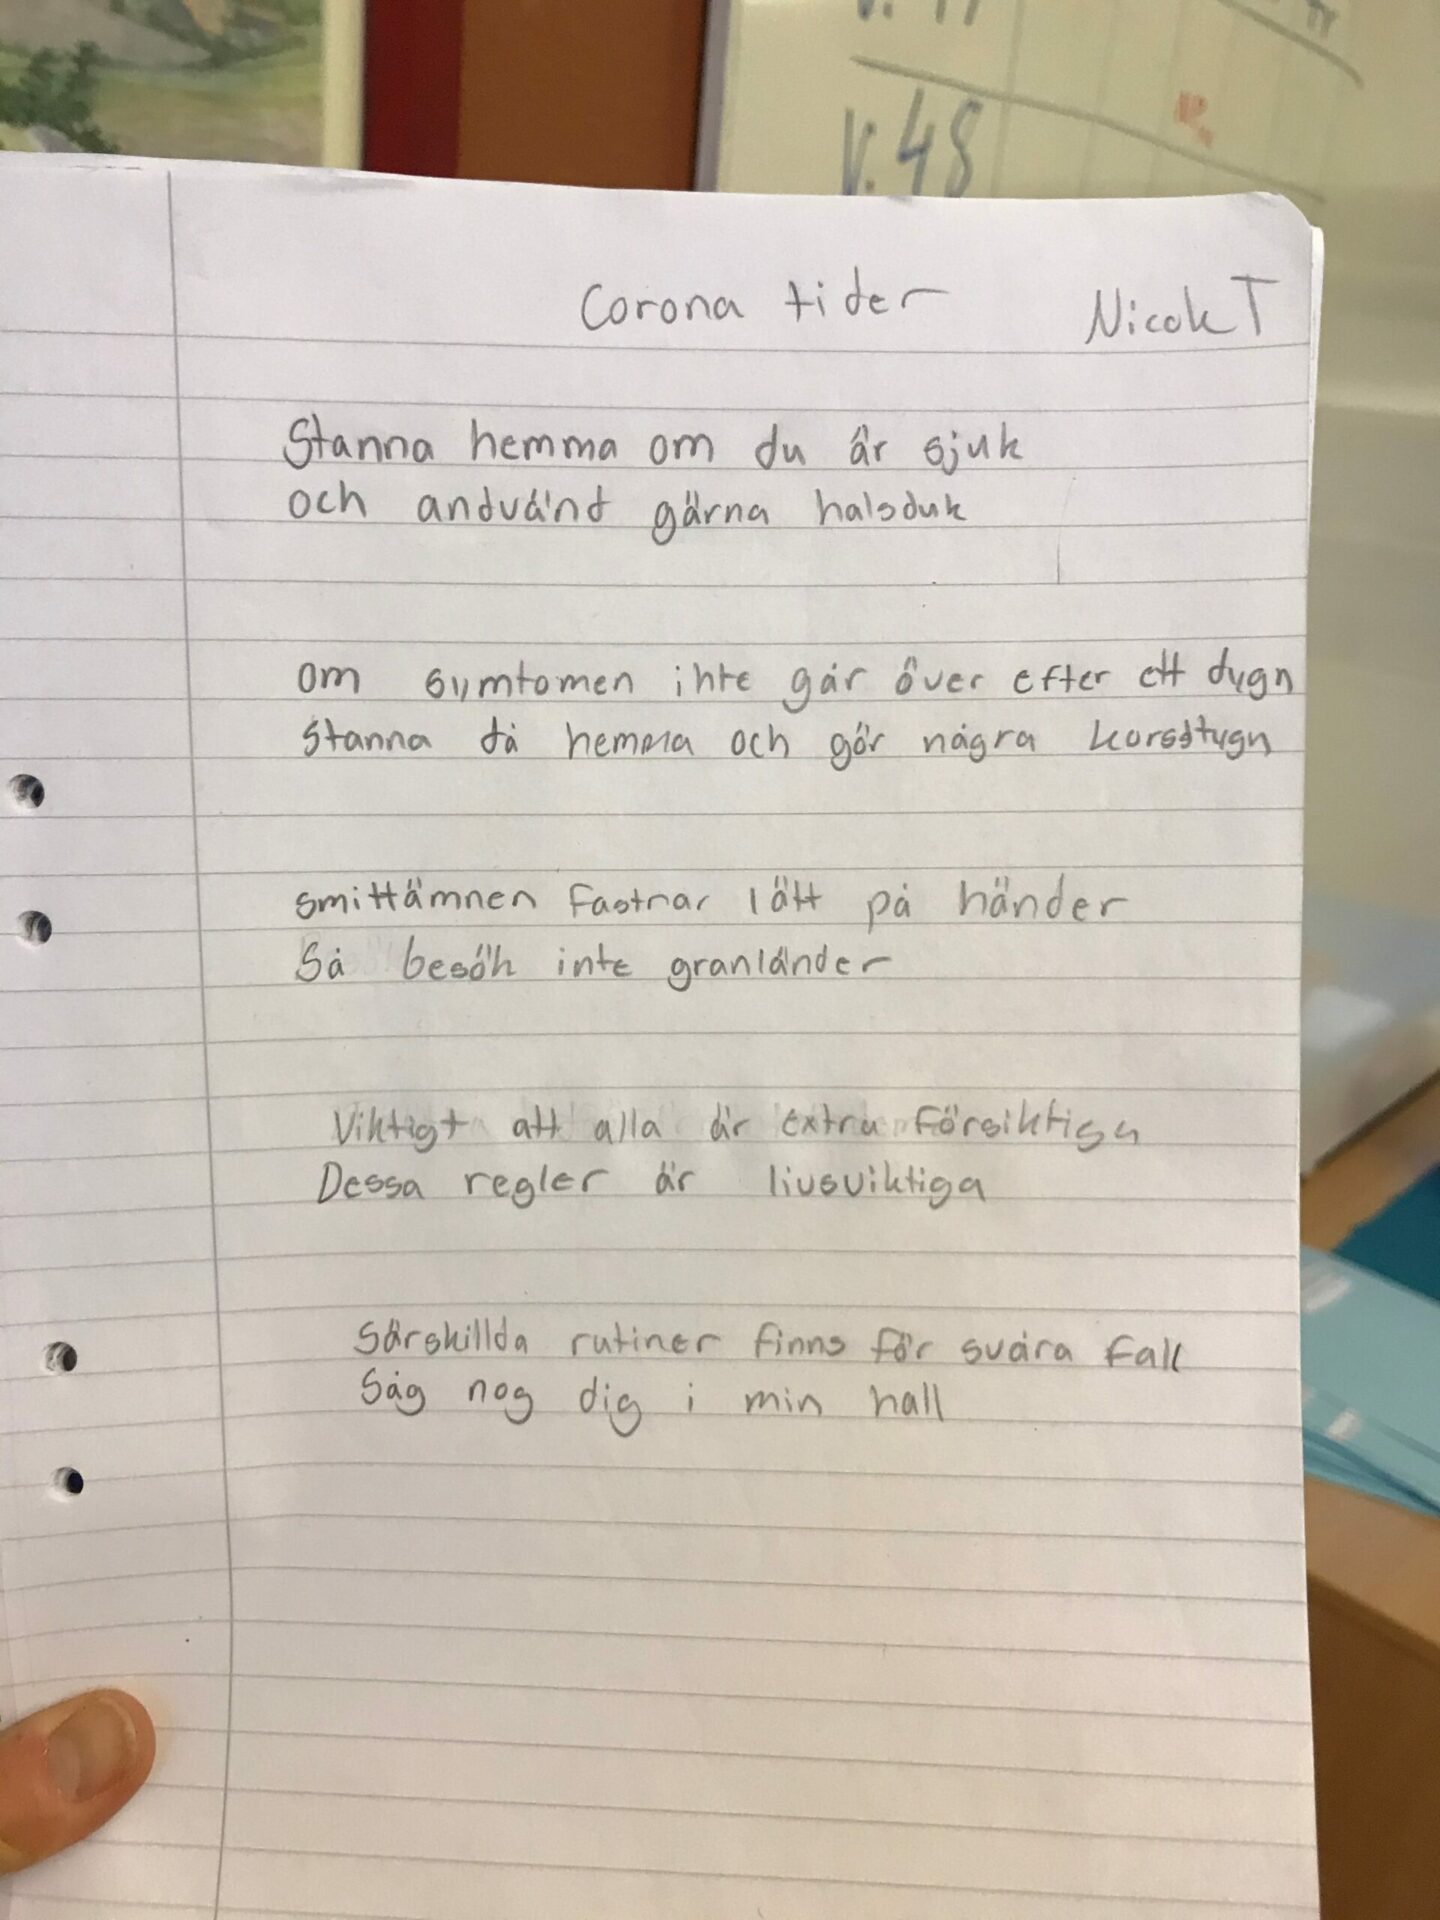 V. 48
Corona tider
Nicole T
Stanna hemma om du är sjuk
och andvänd gärna halsduk
om symtomen inte går över efter ett dygn
Stanna då hemma och gör några korsstygn
smittämnen Fastnar lätt på händer
Så besök inte granländer
Viktigt att alla är extra Försiktiga
Dessa regler är livsviktiga
Särskillda rutiner finns för svåra fall
Såg nog dig i min hall